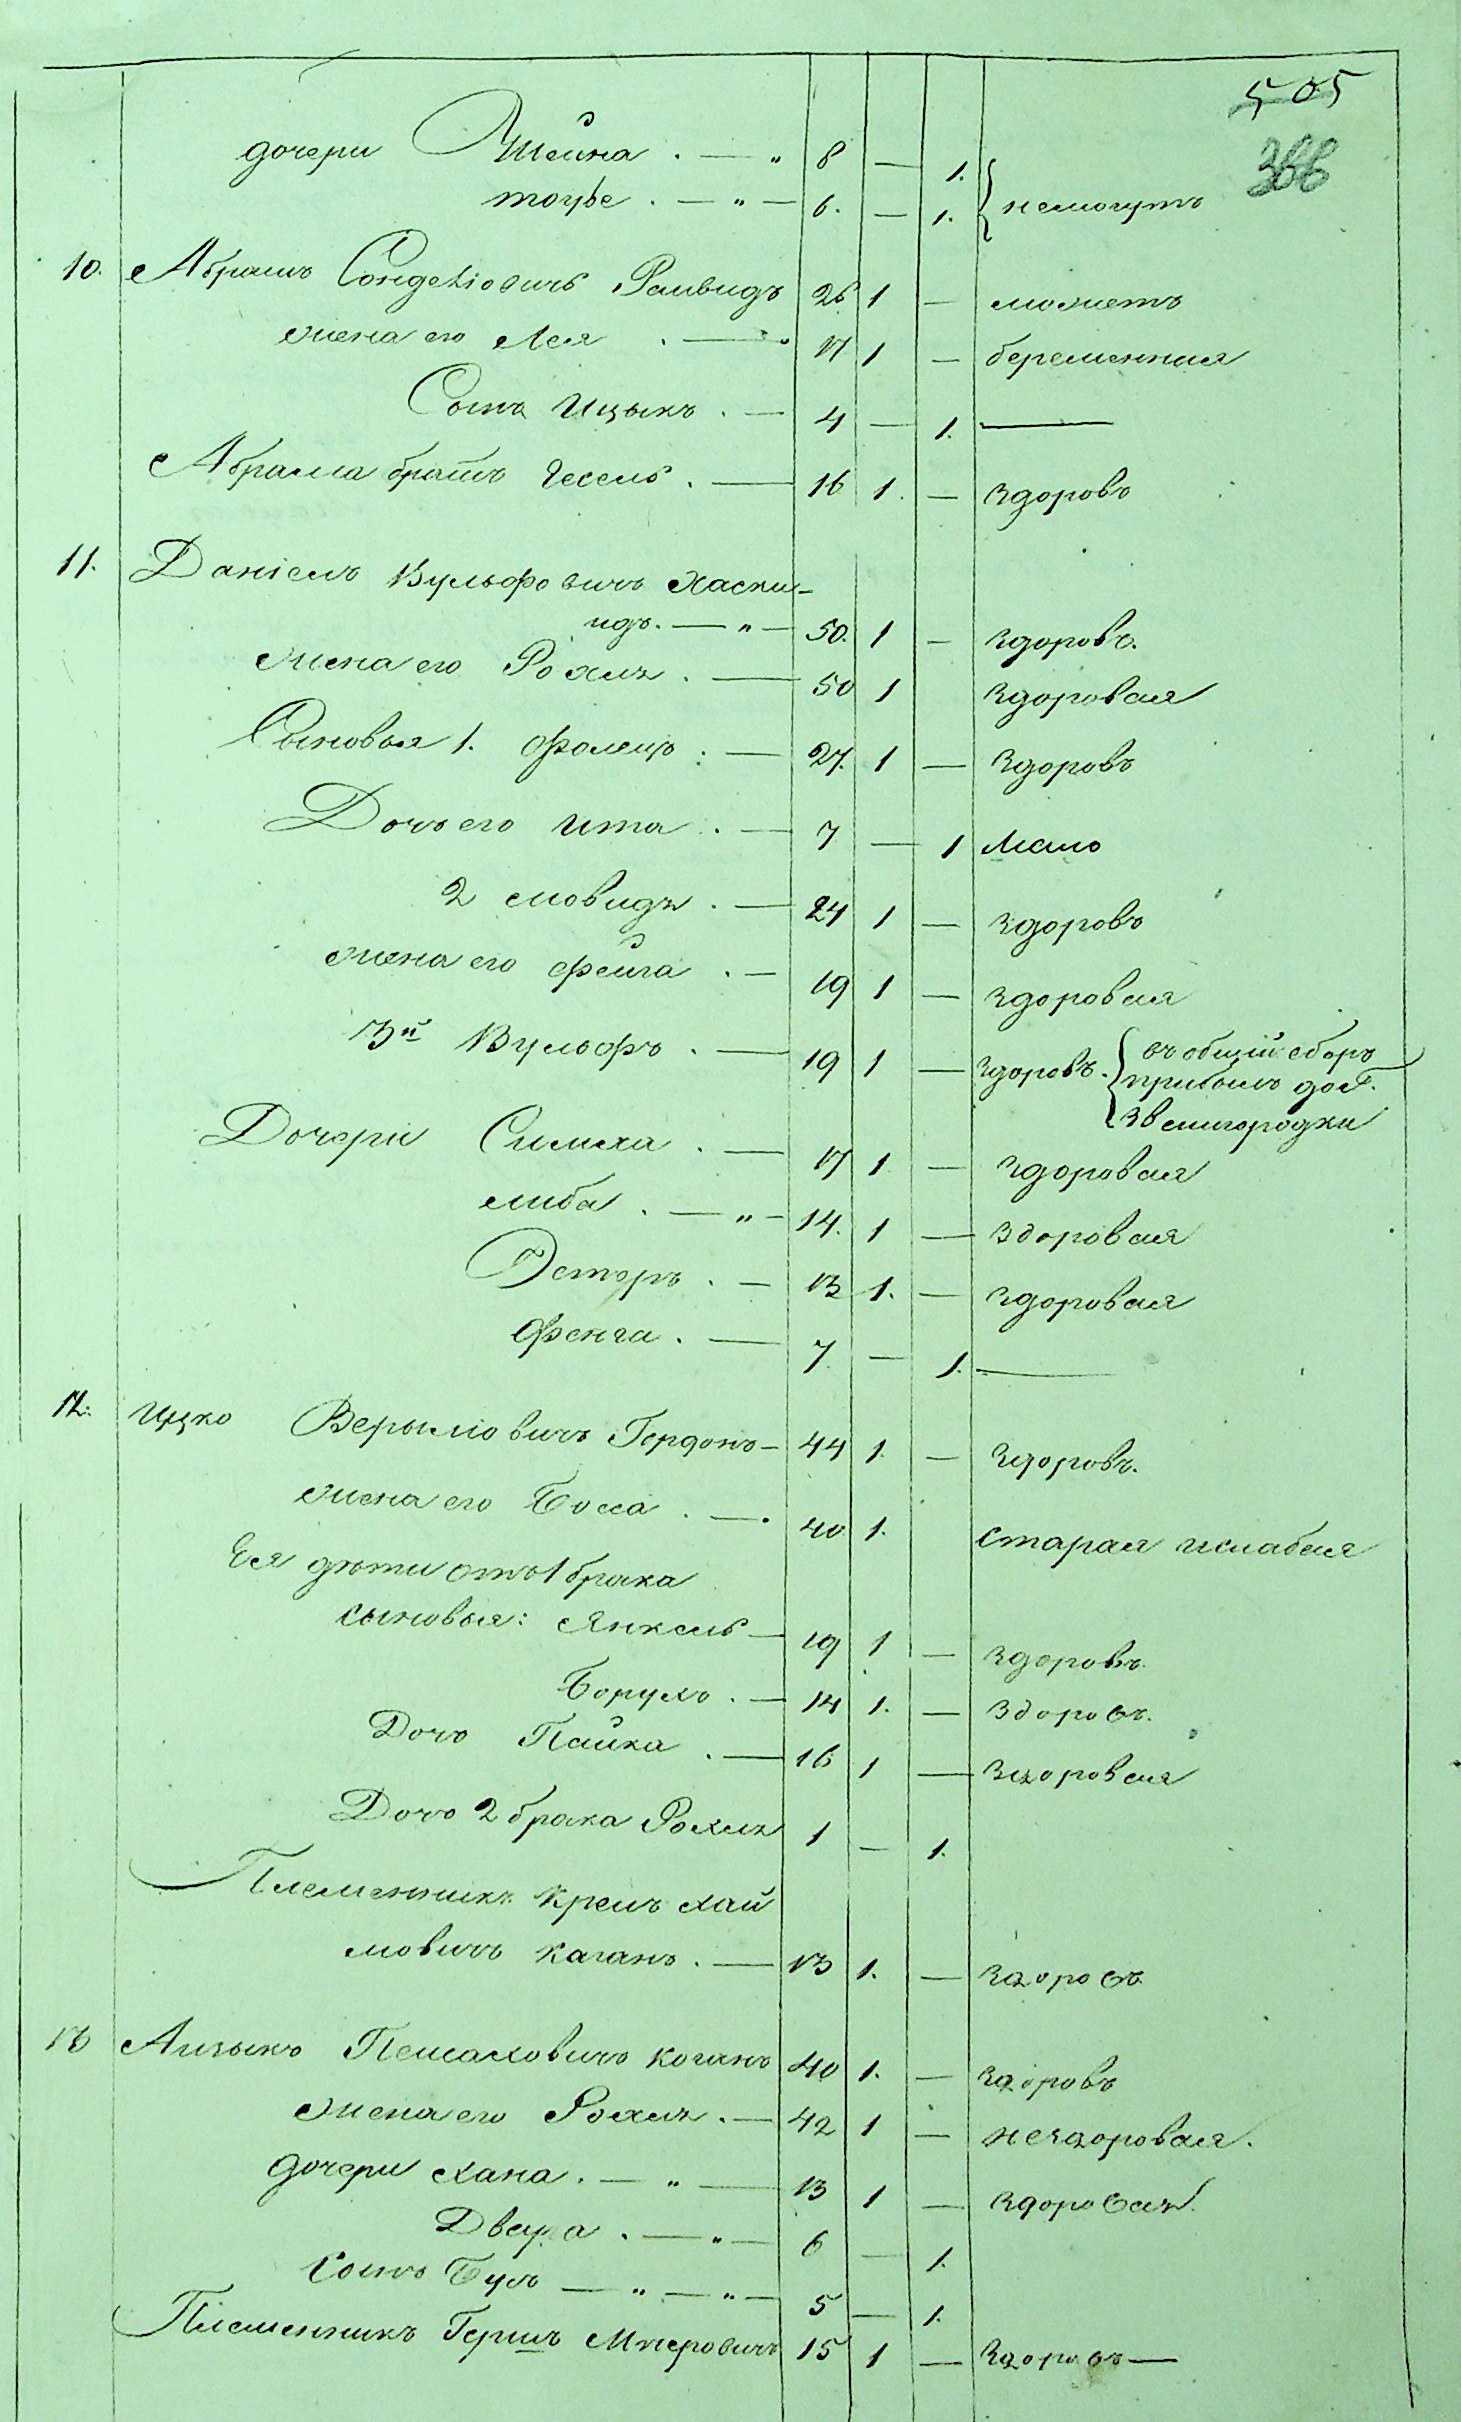 505
366
дочери Шейна . — „ 8 — 1.
тойбе . — „ — 6. — 1. { немогутъ
10. Абрамъ Раивидъ 26 1 — можетъ
жена его Лея . — 17 1 — беременная
Сынъ Ицыкъ . — 4 — 1. —
Абрама братъ Іесель . — 16 1. — здоровъ
11. Даніель Вульфовичъ Хаски-
идъ. — „ — 50. 1 — здоровъ.
жена его Рохля . — 50 1 здоровая
Сыновья 1. : — 27. 1 — здоровъ
Дочь его Ита . — 7 — 1 мало
2 . — 24 1 — здоровъ
жена его Фейга . — 19 1 — здоровая
3й Вульфъ . — 19 1 — здоровъ. { въ общій сборъ
прибылъ
Звенигородки
Дочери Симха . — 17 1 — здоровая
либа . — „ — 14. 1 — здоровая
Эстеръ . — 13 1. — здоровая
Фенга . — 7 — 1. —
12. Ицко Берыліовичъ Гордонъ — 44 1. — здоровъ.
жена его Боса . — 40 1. старая и слабая
Ея дѣти отъ 1 брака
сыновья: Янкель — 19 1 — здоровъ.
Борухъ . — 14 1. — здоровъ.
Дочь Пайка . — 16 1 — здоровая
Дочь 2 брака Рохля 1 — 1.
Племенникъ Хай
мовичъ Каганъ . — 13 1. — здоровъ
13 Айзыкъ Песаховичъ Коганъ 40 1. — здоровъ
жена его Рохля . — 42 1 — нездоровая.
дочери Хана . — „ — 13 1 — здоровая.
Двейра . — „ — 6 — 1.
Сынъ — „ — „ — 5 — 1.
Племенникъ Гершъ Мееровичъ 15 1 — здоровъ —